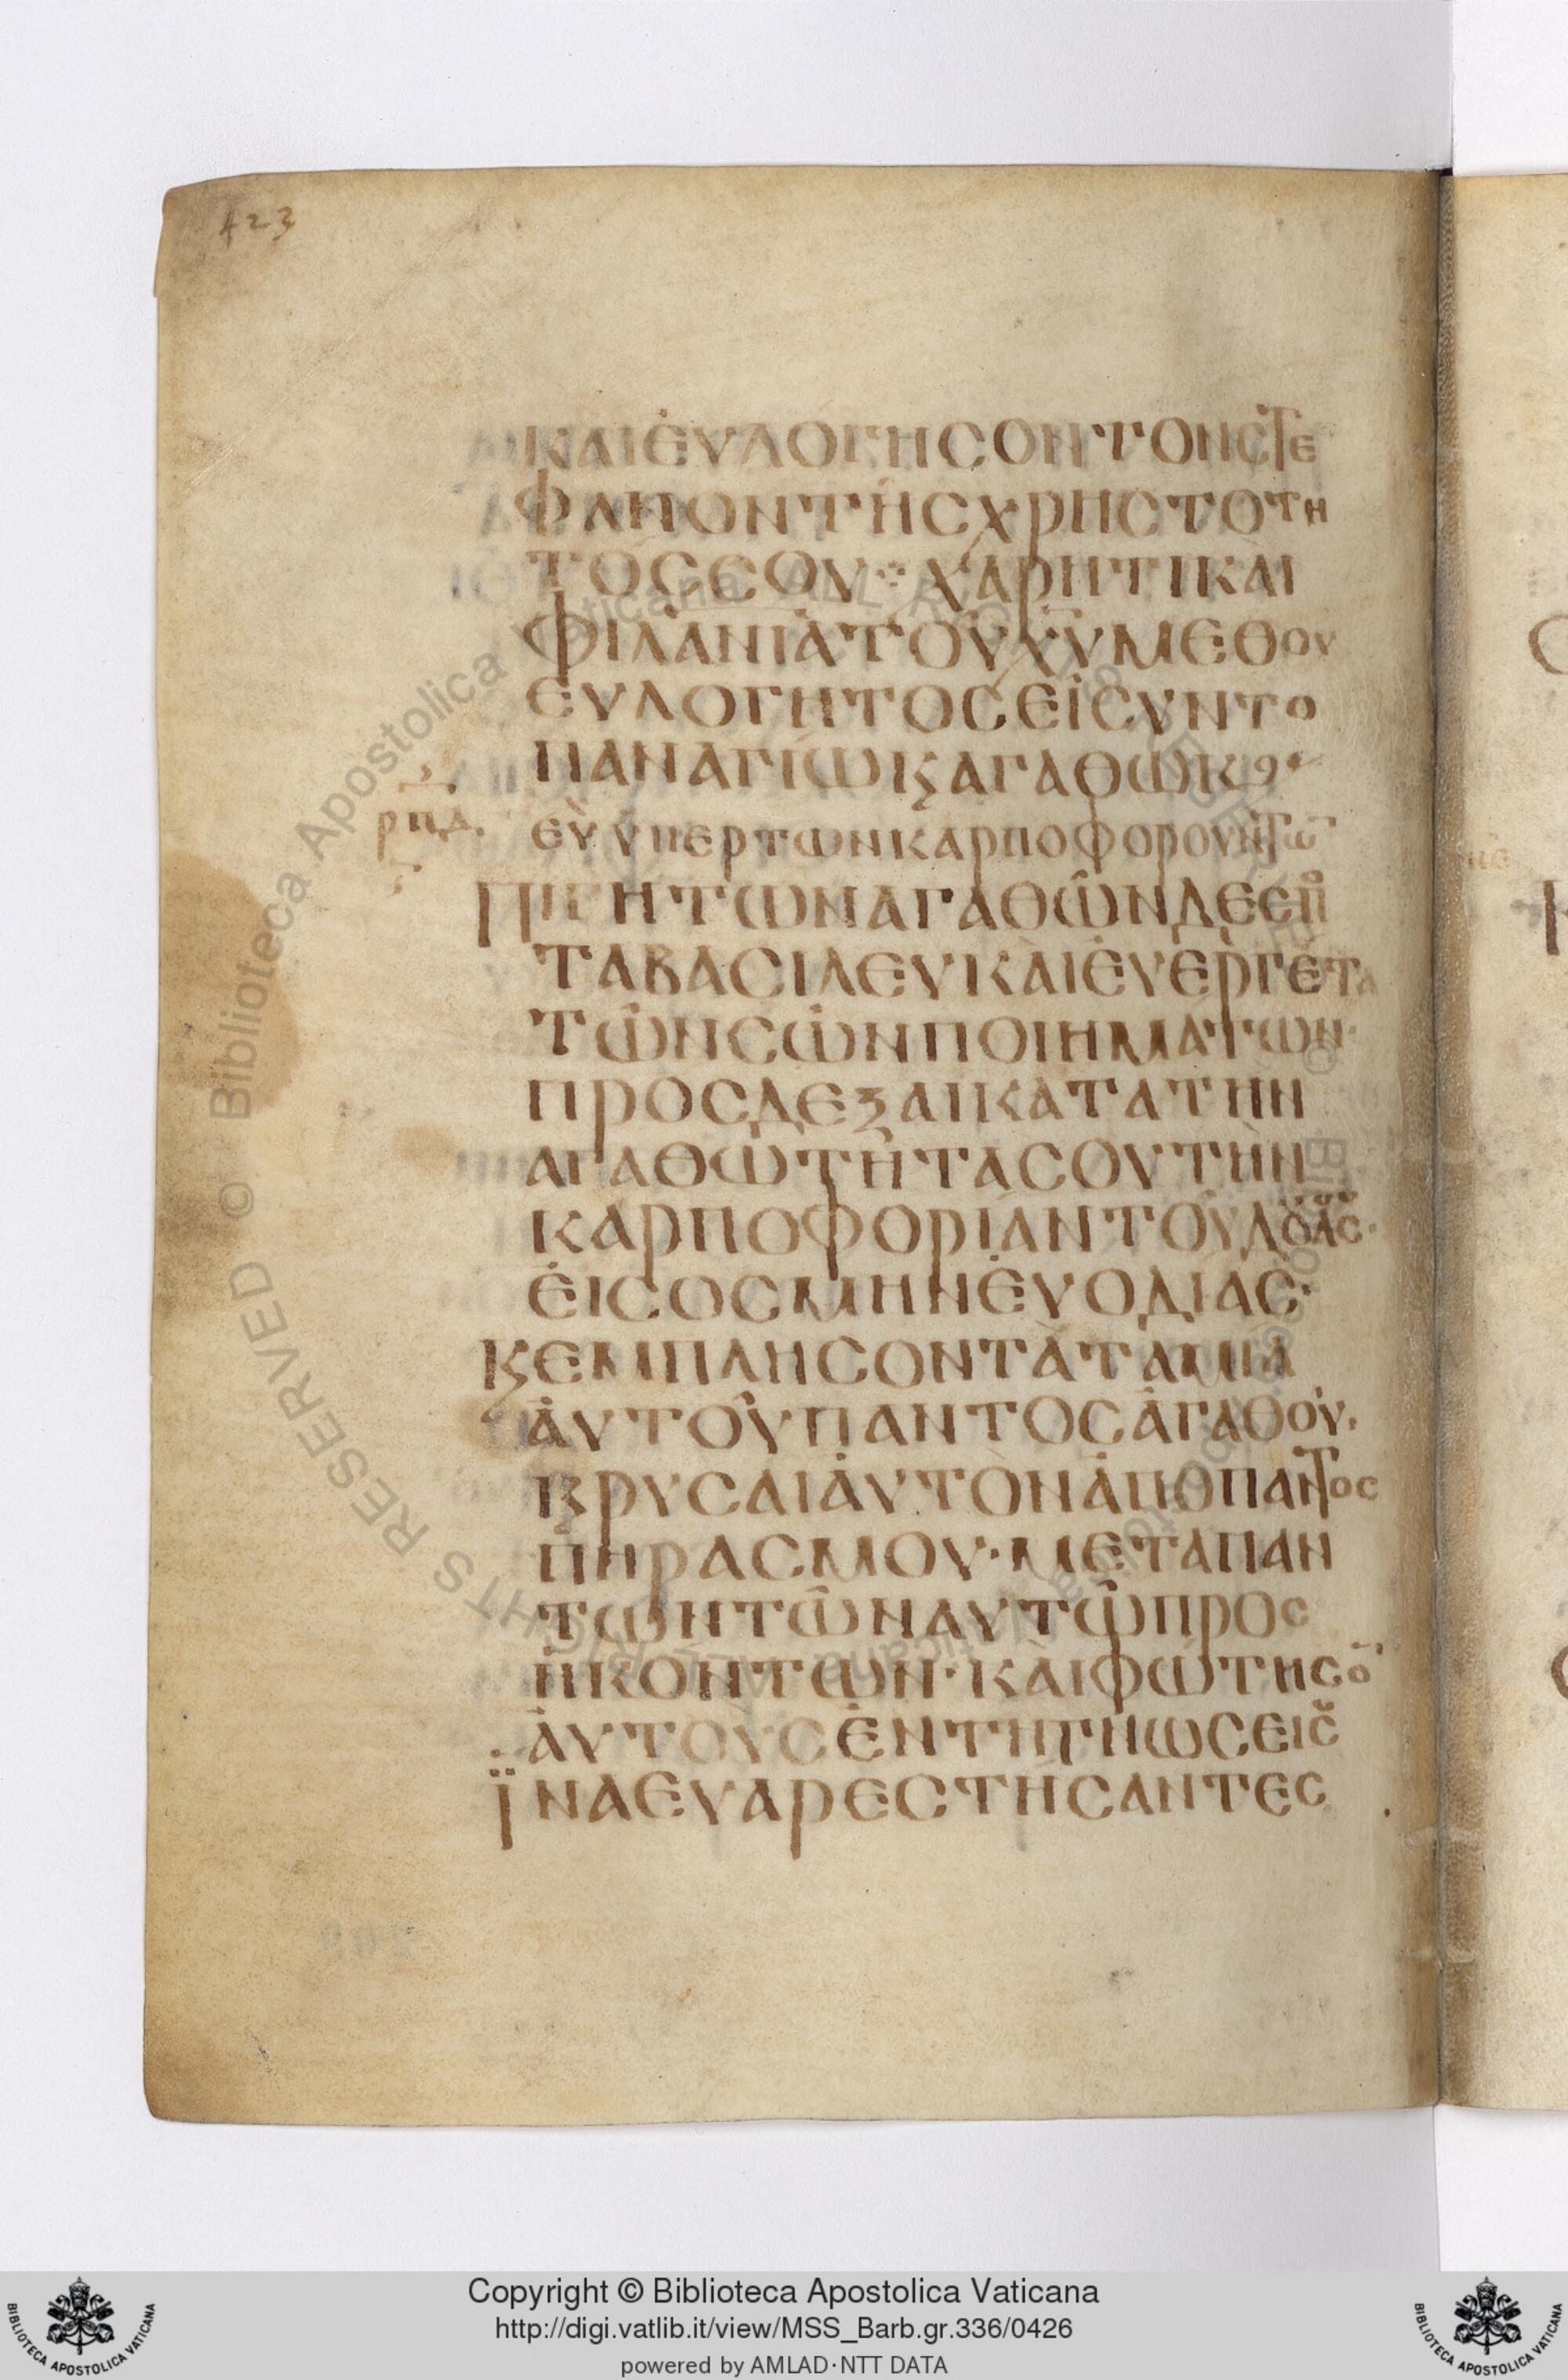 423
ΚΑΙ ΕΥΛΟΓΗСΟΝ ΤΟΝ СΤΕ
ΦΑΝΟΝ ΤΗС ΧΡΗСΤΟΤΗ
ΤΟС СΟΥ ⁘ ΧΑΡΗΤΙ ΚΑΙ
ΦΙΛΑΝΙΑ ΤΟΥ ΧΥ ΜΕΘ ΟΥ
ΕΥΛΟΓΗΤΟС ΕΙ СΥΝ ΤΟ
ΠΑΝΑΓΙΩ Ϗ ΑΓΑΘΩ Κ
ΡΠΔ
ΕΥ ΥΠΕΡ ΤΩΝ ΚΑΡΠΟΦΟΡΟΥΝΤΩ
ΠΙΓΗ ΤΩΝ ΑΓΑΘΩΝ ΔΕСΠ
ΤΑ ΒΑСΙΛΕΥ ΚΑΙ ΕΥΕΡΓΕΤΑ
ΤΩΝ СΩΝ ΠΟΙΗΜΑΤΩΝ·
ΠΡΟСΔΕΞΑΙ ΚΑΤΑ ΤΗΝ
ΑΓΑΘΩΤΗΤΑ СΟΥ ΤΗΝ
ΚΑΡΠΟΦΟΡΙΑΝ ΤΟΥ Δȣ СȢ·
ΕΙС ΟСΜΗΝ ΕΥΟΔΙΑС·
Ϗ ΕΜΠΛΗСΟΝ ΤΑ ΤΑΜΙΑ
ΑΥΤΟΥ ΠΑΝΤΟС ΑΓΑΘΟΥ·
Ϗ ΡΥСΑΙ ΑΥΤΟΝ ΑΠΟ ΠΑΝΤΟС
ΠΗΡΑСΜΟΥ· ΜΕΤΑ ΠΑΝ
ΤΩΝ ΤΩΝ ΑΥΤΩ ΠΡΟС
ΗΚΟΝΤΩΝ· ΚΑΙ ΦΩΤΗСΟ
ΑΥΤΟΥС ΕΝ ΤΗ ΓΝΩСΕΙ С
ΪΝΑ ΕΥΑΡΕСΤΗСΑΝΤΕС
Copyright © Biblioteca Apostolica Vaticana
http://digi.vatlib.it/view/MSS_Barb.gr.336/0426
powered by AMLAD·NTT DATA
BIBLIOTECA APOSTOLICA VATICANA
BIBLIOTECA APOSTOLICA VATICANA